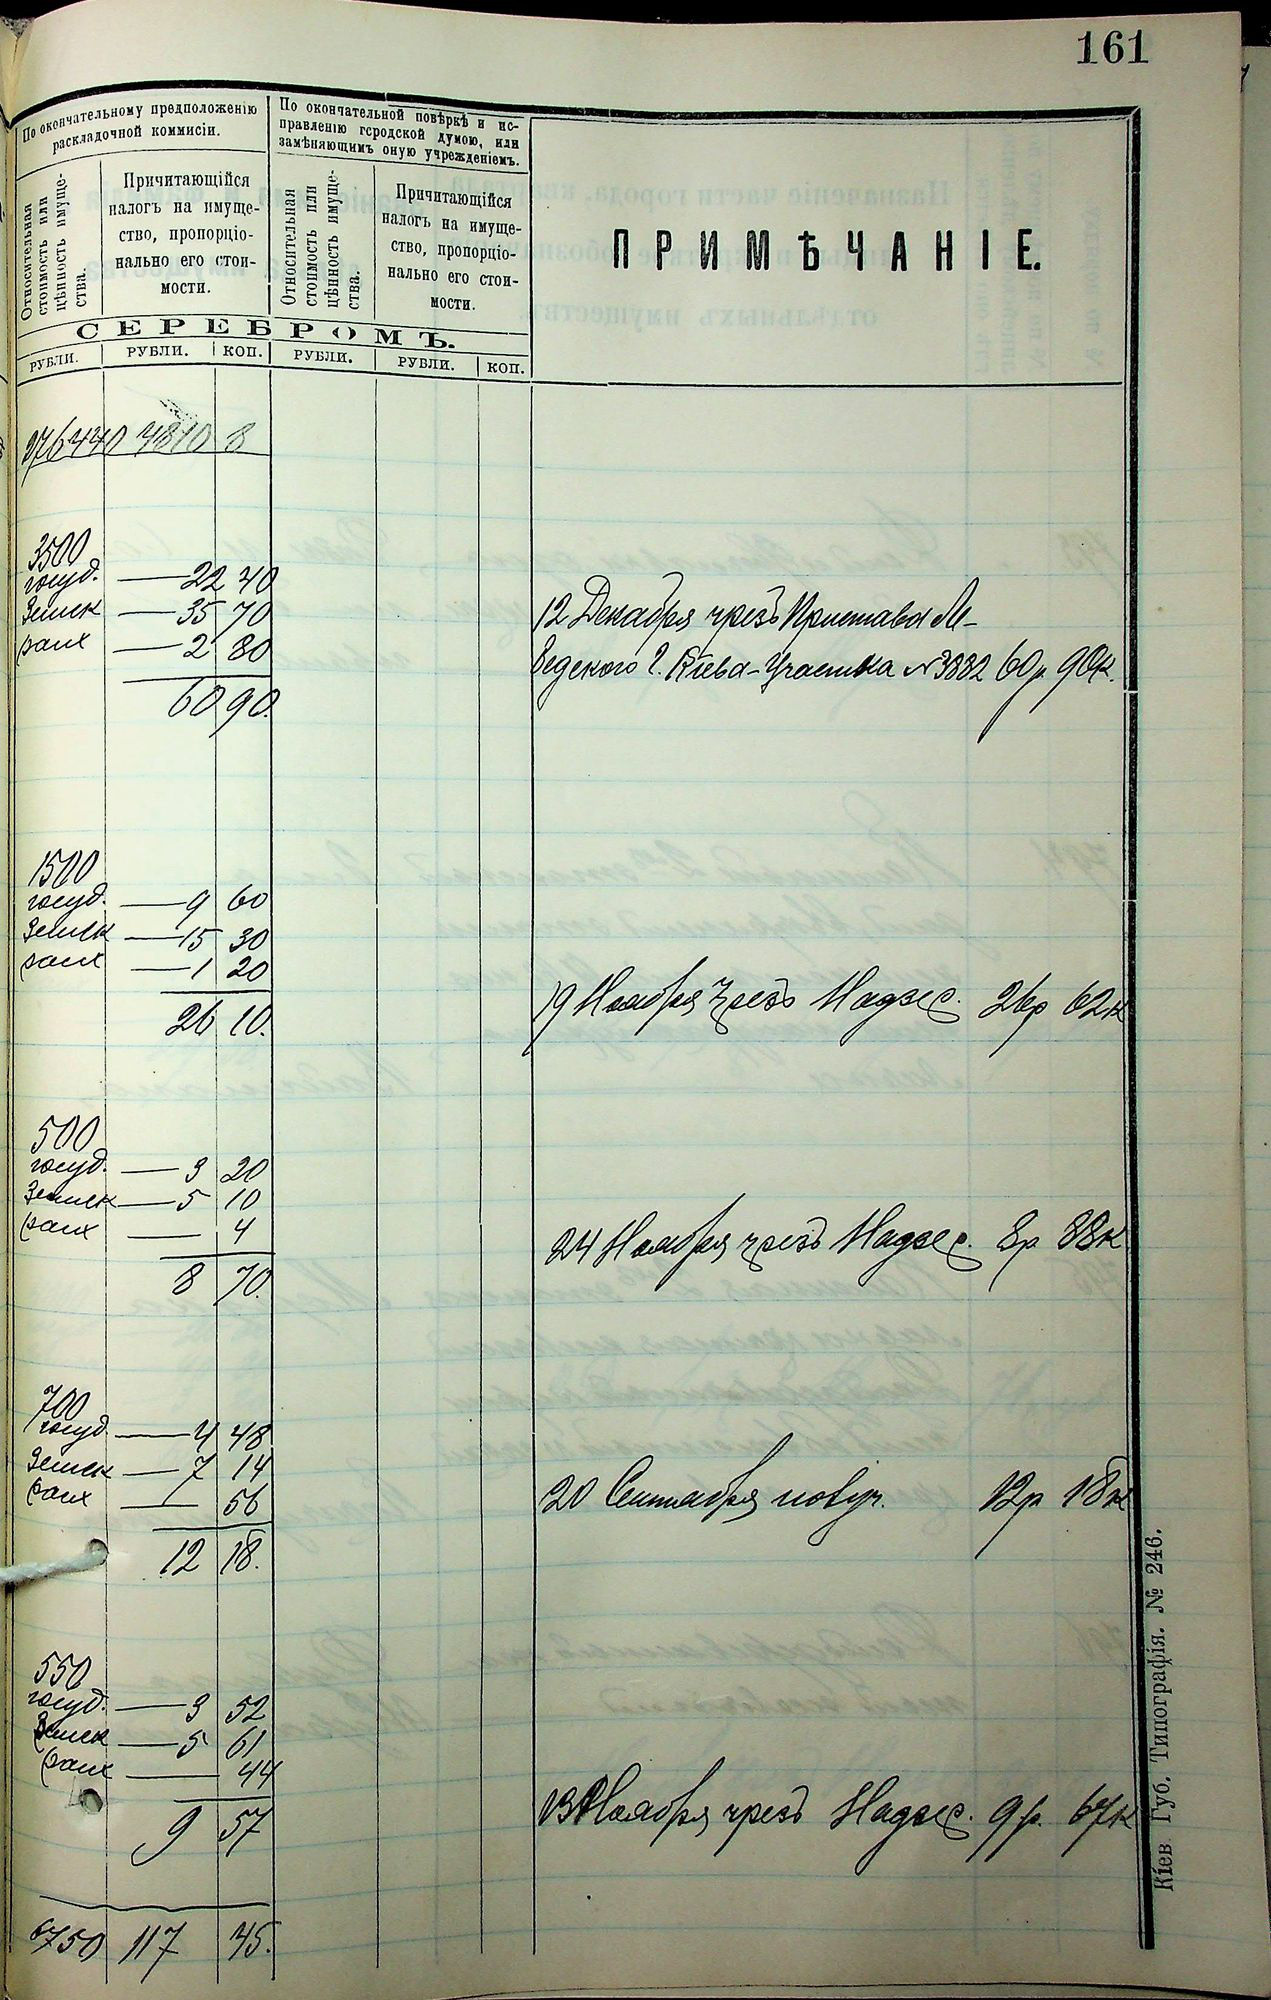 161
По окончательному предположенію
раскладочной коммисіи.
По окончательной повѣркѣ и ис-
правленію городской думою, или
замѣняющимъ оную учрежденіемъ.
Относительная
стоимость или
цѣнность имуще-
ства.
Причитающійся
налогъ на имуще-
ство, пропорціо-
нально его стои-
мости.
Относительная
стоимость или
цѣнность имуще-
ства.
Причитающійся
налогъ на имуще-
ство, пропорціо-
нально его стои-
мости.
ПРИМѢЧАНІЕ.
СЕРЕБРОМЪ.
РУБЛИ. РУБЛИ. КОП. РУБЛИ. РУБЛИ. КОП.
276440 4810 8
3500
госуд. — 22 40
Земск — 35 70
2 80
60 90.
12 Декабря чрезъ Пристава
г. Кіева Участка №3882 60р 90к.
1500
госуд. — 9 60
Земск — 15 30
1 20
26 10.
19 Ноября чрезъ Надзс. 26р 62к
500
госуд. — 3 20
Земск — 5 10
4
8 70.
24 Ноября чрезъ Надзс. 8р 88к
700
госуд — 4 48
Земск — 7 14
56
12 18.
20 Сентября 12р 18к
550
госуд. — 3 52
Земск — 5 61
44
9 57
13 Ноября чрезъ Надзс. 9р. 67к
6750 117 45.
Кіев. Губ. Типографія. № 246.